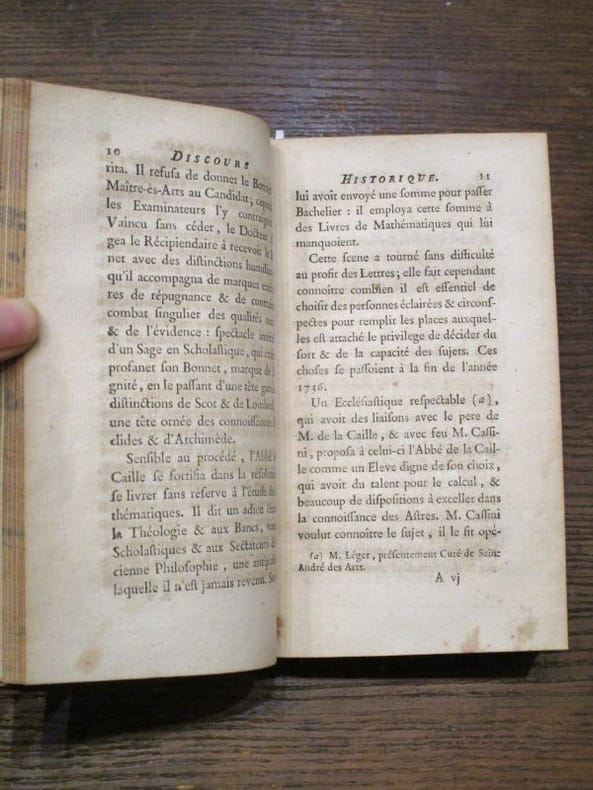 10 DISCOURS
rita. Il refusa de donner le Bonnet
Maître-ès-Arts au Candidat;
les Examinateurs l'y
Vaincu sans céder, le Docteur
gea le Récipiendaire à recevoir le
net avec des distinctions
qu'il accompagna de marques
res de répugnance & de
combat singulier des qualités
& de l'évidence: spectacle
d'un Sage en Scholastique, qui
profaner son Bonnet, marque de
gnité, en le passant d'une tête
distinctions de Scot & de
une tête ornée des connoissances
clides & d'Archimède.
Sensible au procédé, l'Abbé
Caille se fortifia dans la
se livrer sans réserve à l'étude
thématiques. Il dit un adieu
la Théologie & aux Bancs,
Scholastiques & aux Sectateurs
cienne Philosophie, une
laquelle il n'est jamais revenu.
HISTORIQUE. 11
lui avoit envoyé une somme pour passer
Bachelier : il employa cette somme à
des Livres de Mathématiques qui lui
manquoient.
Cette scene a tourné sans difficulté
au profit des Lettres; elle fait cependant
connoître combien il est essentiel de
choisir des personnes éclairées & circons-
pectes pour remplir les places auxquel-
les est attaché le privilege de décider du
sort & de la capacité des sujets. Ces
choses se passoient à la fin de l'année
1736.
Un Ecclésiastique respectable (a),
qui avoit des liaisons avec le pere de
M. de la Caille, & avec feu M. Cassi-
ni, proposa à celui-ci l'Abbé de la Cail-
le comme un Eleve digne de son choix,
qui avoit du talent pour le calcul, &
beaucoup de dispositions à exceller dans
la connoissance des Astres. M. Cassini
voulut connoître le sujet, il le fit opé-
(a) M. Léger, présentement Curé de Saint
André des Arts.
A vj